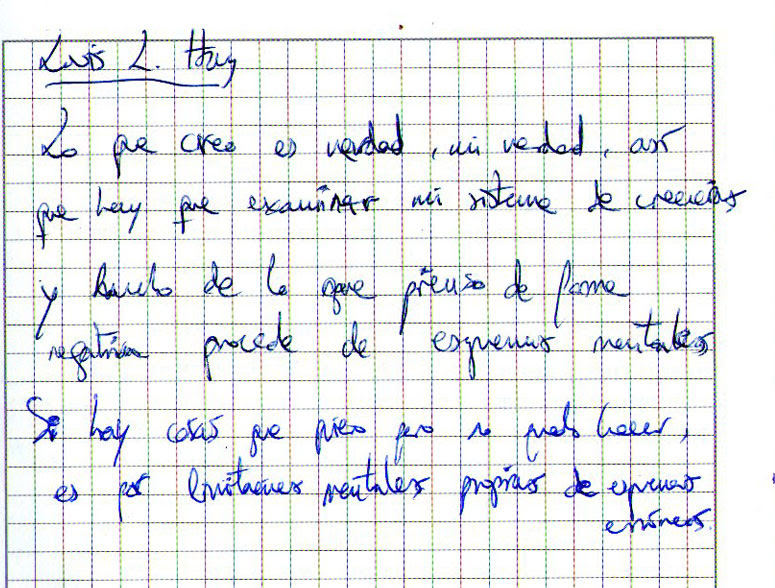 Luis L. Hay
Lo que creo es verdad, mi verdad, así
que hay que examinar mi sistema de creencias
y mucho de lo que pienso de forma
negativa procede de esquemas mentales
Si hay cosas que quiero pero no puedo hacer,
es por limitaciones mentales propias de esquemas
erróneos.